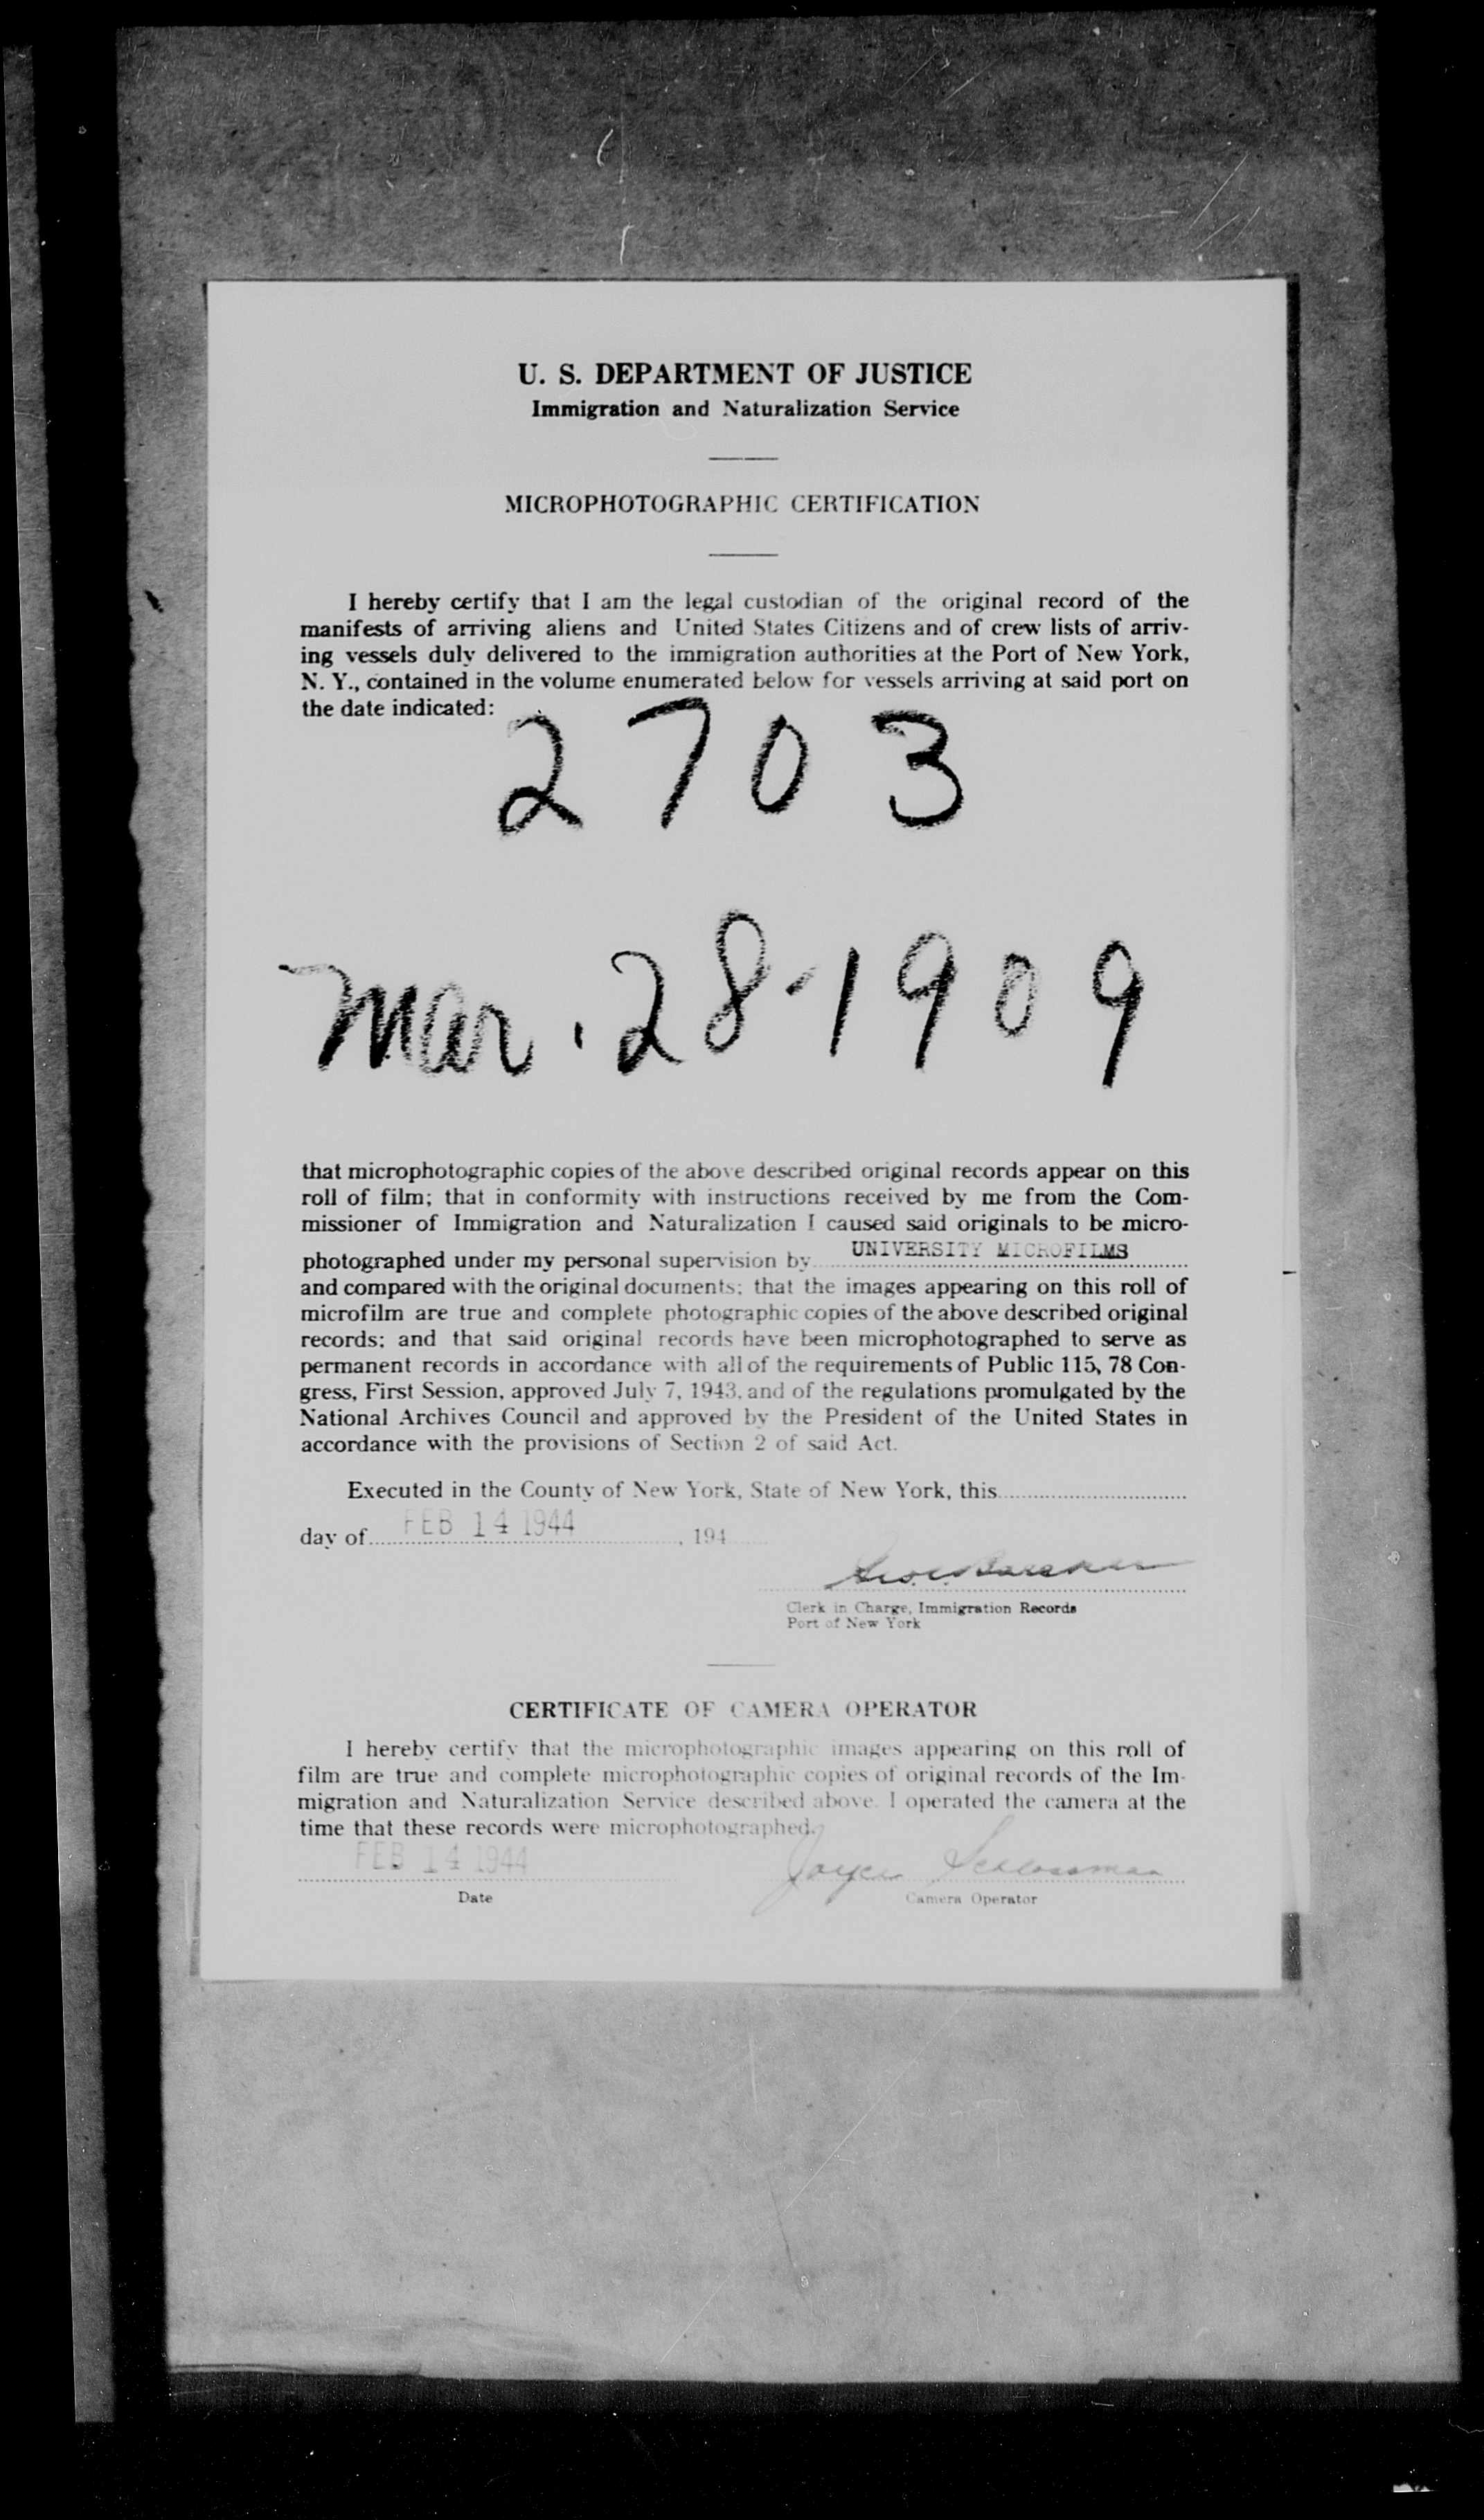 U. S. DEPARTMENT OF JUSTICE
Immigration and Naturalization Service
MICROPHOTOGRAPHIC CERTIFICATION
I hereby certify that I am the legal custodian of the original record of the
manifests of arriving aliens and United States Citizens and of crew lists of arriv-
ing vessels duly delivered to the immigration authorities at the Port of New York,
N. Y., contained in the volume enumerated below for vessels arriving at said port on
the date indicated:
2703
Mar. 28-1909
that microphotographic copies of the above described original records appear on this
roll of film; that in conformity with instructions received by me from the Com-
missioner of Immigration and Naturalization I caused said originals to be micro-
photographed under my personal supervision by UNIVERSITY MICROFILMS
and compared with the original documents; that the images appearing on this roll of
microfilm are true and complete photographic copies of the above described original
records; and that said original records have been microphotographed to serve as
permanent records in accordance with all of the requirements of Public 115, 78 Con-
gress, First Session, approved July 7, 1943, and of the regulations promulgated by the
National Archives Council and approved by the President of the United States in
accordance with the provisions of Section 2 of said Act.
Executed in the County of New York, State of New York, this
day of FEB 14 1944, 194
Clerk in Charge, Immigration Records
Port of New York
CERTIFICATE OF CAMERA OPERATOR
I hereby certify that the microphotographic images appearing on this roll of
film are true and complete microphotographic copies of original records of the Im-
migration and Naturalization Service described above. I operated the camera at the
time that these records were microphotographed.
FEB 14 1944 Joyce Schlossman
Date Camera Operator